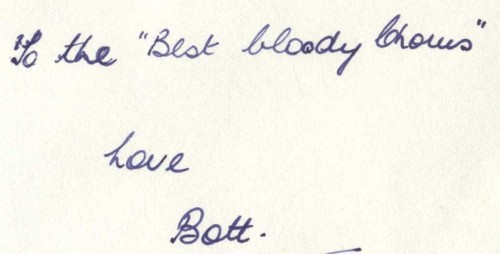 To the "Best bloody Chorus"
Love
Bott.